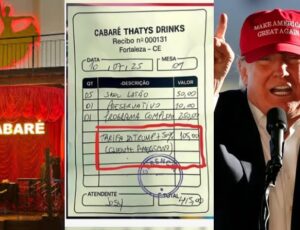 CABARÉ
CABARÉ THATYS DRINKS
Recibo nº 000131
Fortaleza - CE
DATA
MESA
10 / 07 / 25
07
QT
DESCRIÇÃO
VALOR
05 SKOL LATÃO 50,00
01 PRESERVATIVO 10,00
01 PROGRAMA COMPLETO 250,00
TARIFA DTRUMP + 50% 105,00
(CLIENTE AMERICANO)
ATENDENTE
TOTAL
415,00
MAKE AMERICA
GREAT AGAIN